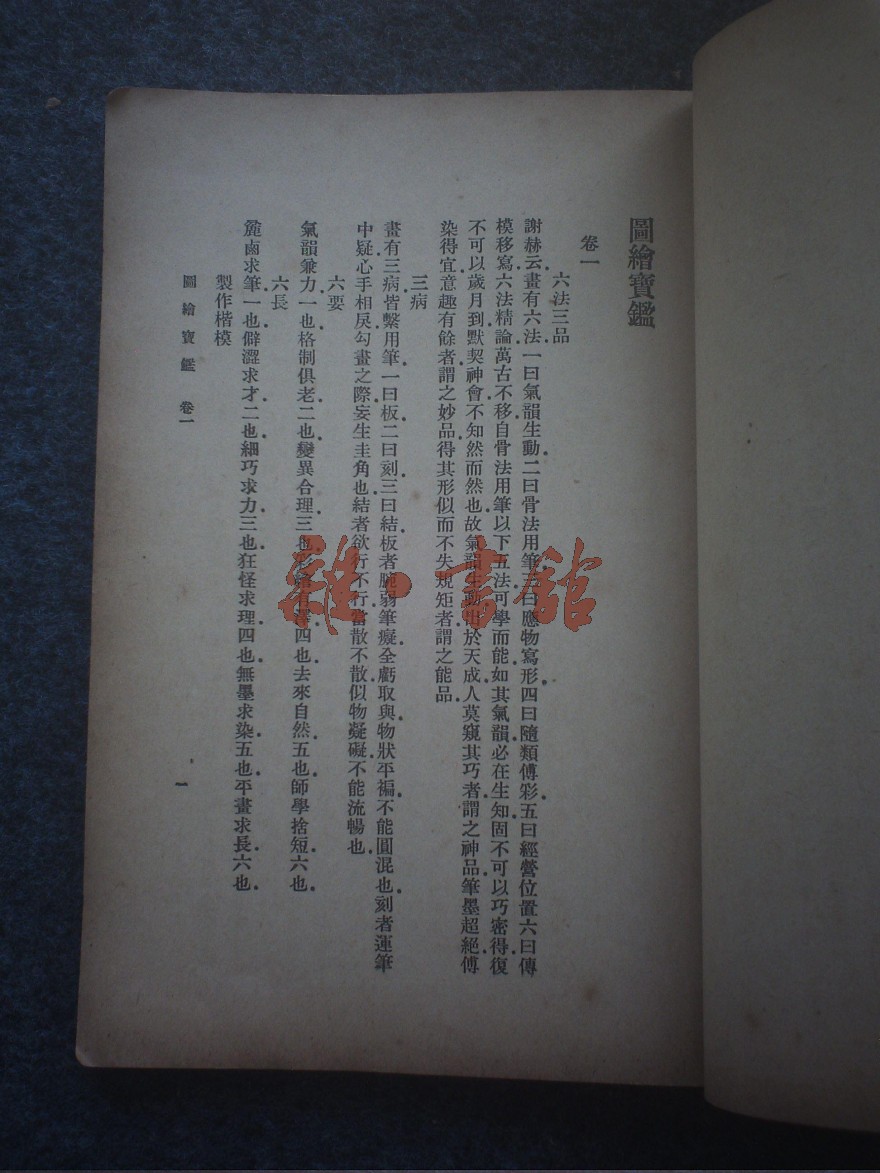 圖繪寶鑑
卷一
六法三品
謝赫云畫有六法一曰氣韻生動二曰骨法用筆三曰應物寫形四曰隨類傅彩五曰經營位置六曰傳
模移寫六法精論萬古不移自骨法用筆以下五法可學而能如其氣韻必在生知固不可以巧密得復
不可以歲月到默契神會不知然而然也故氣韻生動出於天成人莫窺其巧者謂之神品筆墨超絕傅
染得宜意趣有餘者謂之妙品得其形似而不失規矩者謂之能品
三病
畫有三病皆繫用筆一曰板二曰刻三曰結板者腕弱筆癡全虧取與物狀平褊不能圓混也刻者運筆
中疑心手相戾勾畫之際妄生圭角也結者欲行不行當散不散似物凝礙不能流暢也
六要
氣韻兼力一也格制俱老二也變異合理三也彩繪有澤四也去來自然五也師學捨短六也
六長
麄鹵求筆一也僻澀求才二也細巧求力三也狂怪求理四也無墨求染五也平畫求長六也
製作楷模
圖繪寶鑑 卷一
一
雜·書館